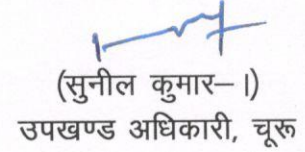 (सुनील कुमार– ।)
उपखण्ड अधिकारी, चूरू